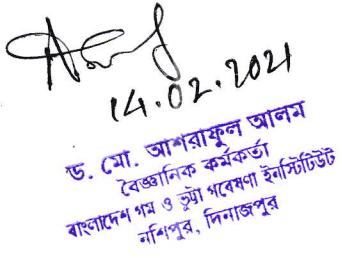 14.02.2021
ড. মো. আশরাফুল আলম
বৈজ্ঞানিক কর্মকর্তা
বাংলাদেশ গম ও ভুট্টা গবেষণা ইনস্টিটিউট
নশিপুর, দিনাজপুর